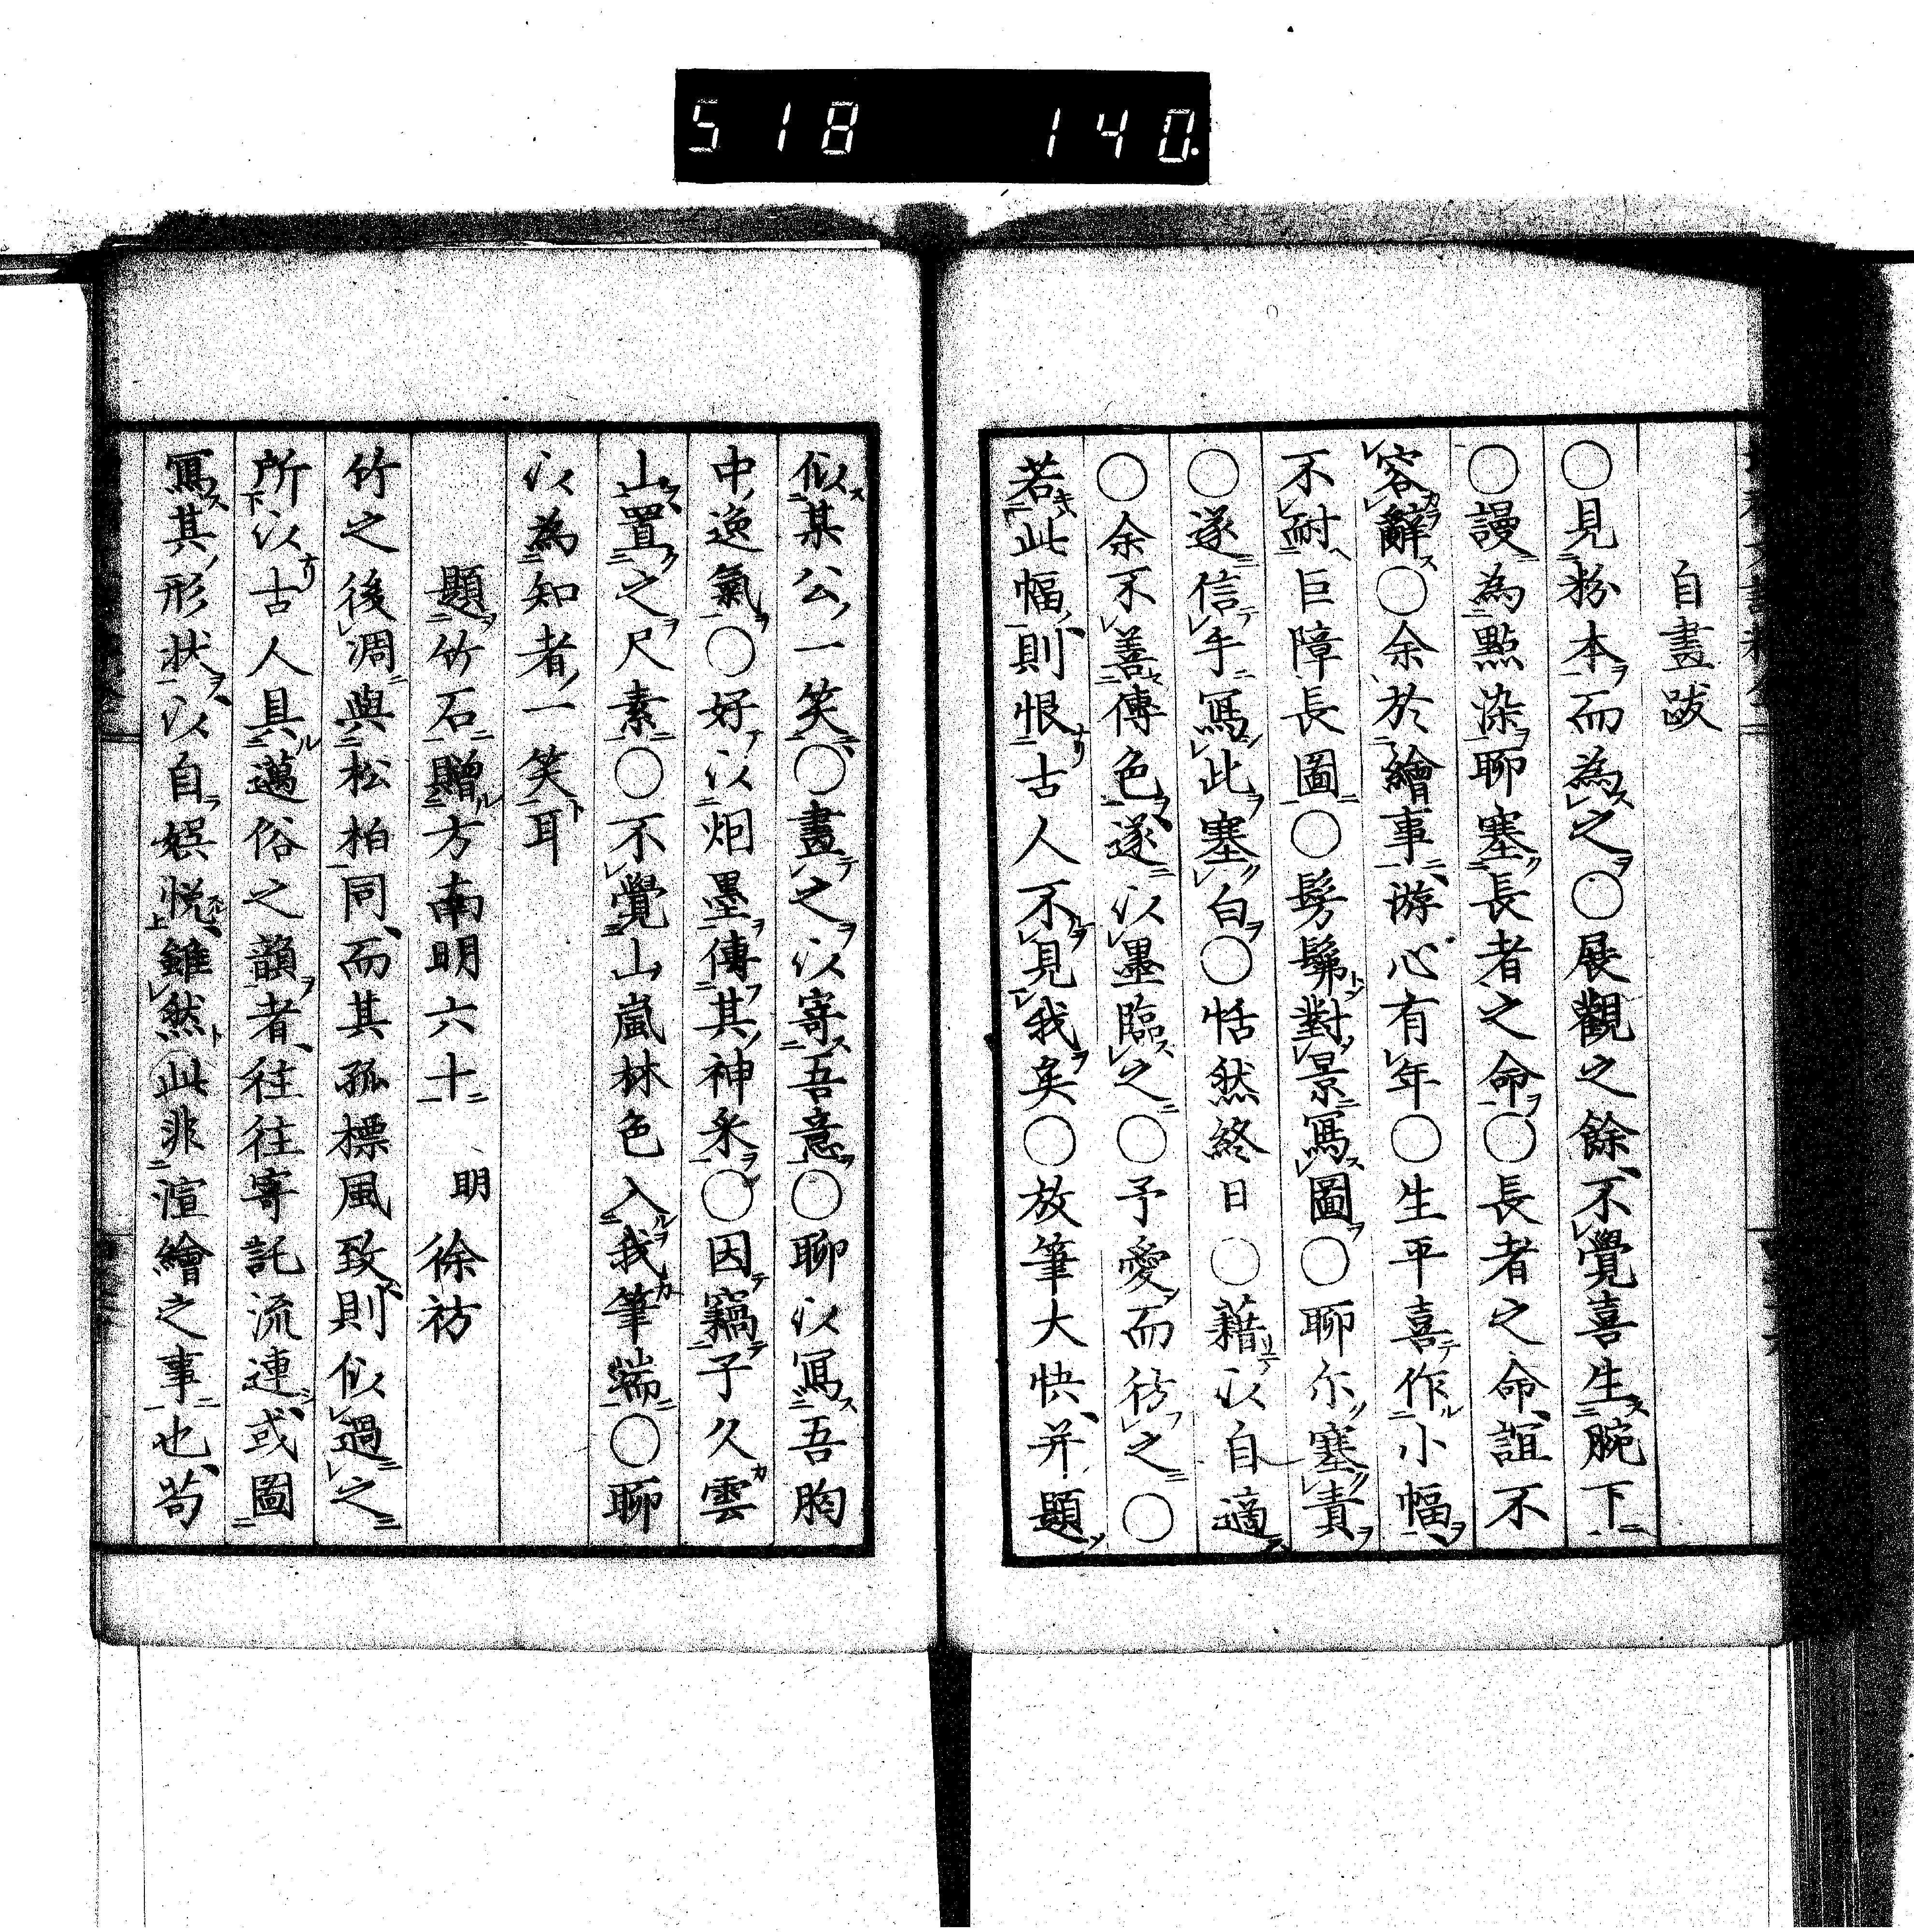 518 140.
自畫跋
○見粉本而為之○展觀之餘不覺喜生腕下
○謾為點染聊塞長者之命○長者之命誼不
容辭○余於繪事游心有年○生平喜作小幅
不耐巨障長圖○髣髴對景寫圖○聊尔塞責
○遂信手寫此塞白○恬然終日○藉以自適
○余不善傳色遂以墨臨之○予愛而彷之○
若此幅則恨古人不見我矣○放筆大快并題
似某公一笑○畫之以寄吾意○聊以寫吾胸
中逸氣○好以烟墨傳其神采○因竊子久雲
山置之尺素○不覺山嵐林色入我筆端○聊
以為知者一笑耳
題竹石贈方南明六十 明 徐枋
竹之後凋與松柏同而其孤標風致則似過之
所以古人具邁俗之韻者往往寄託流連或圖
寫其形状以自娯悦雖然此非渲繪之事也苟